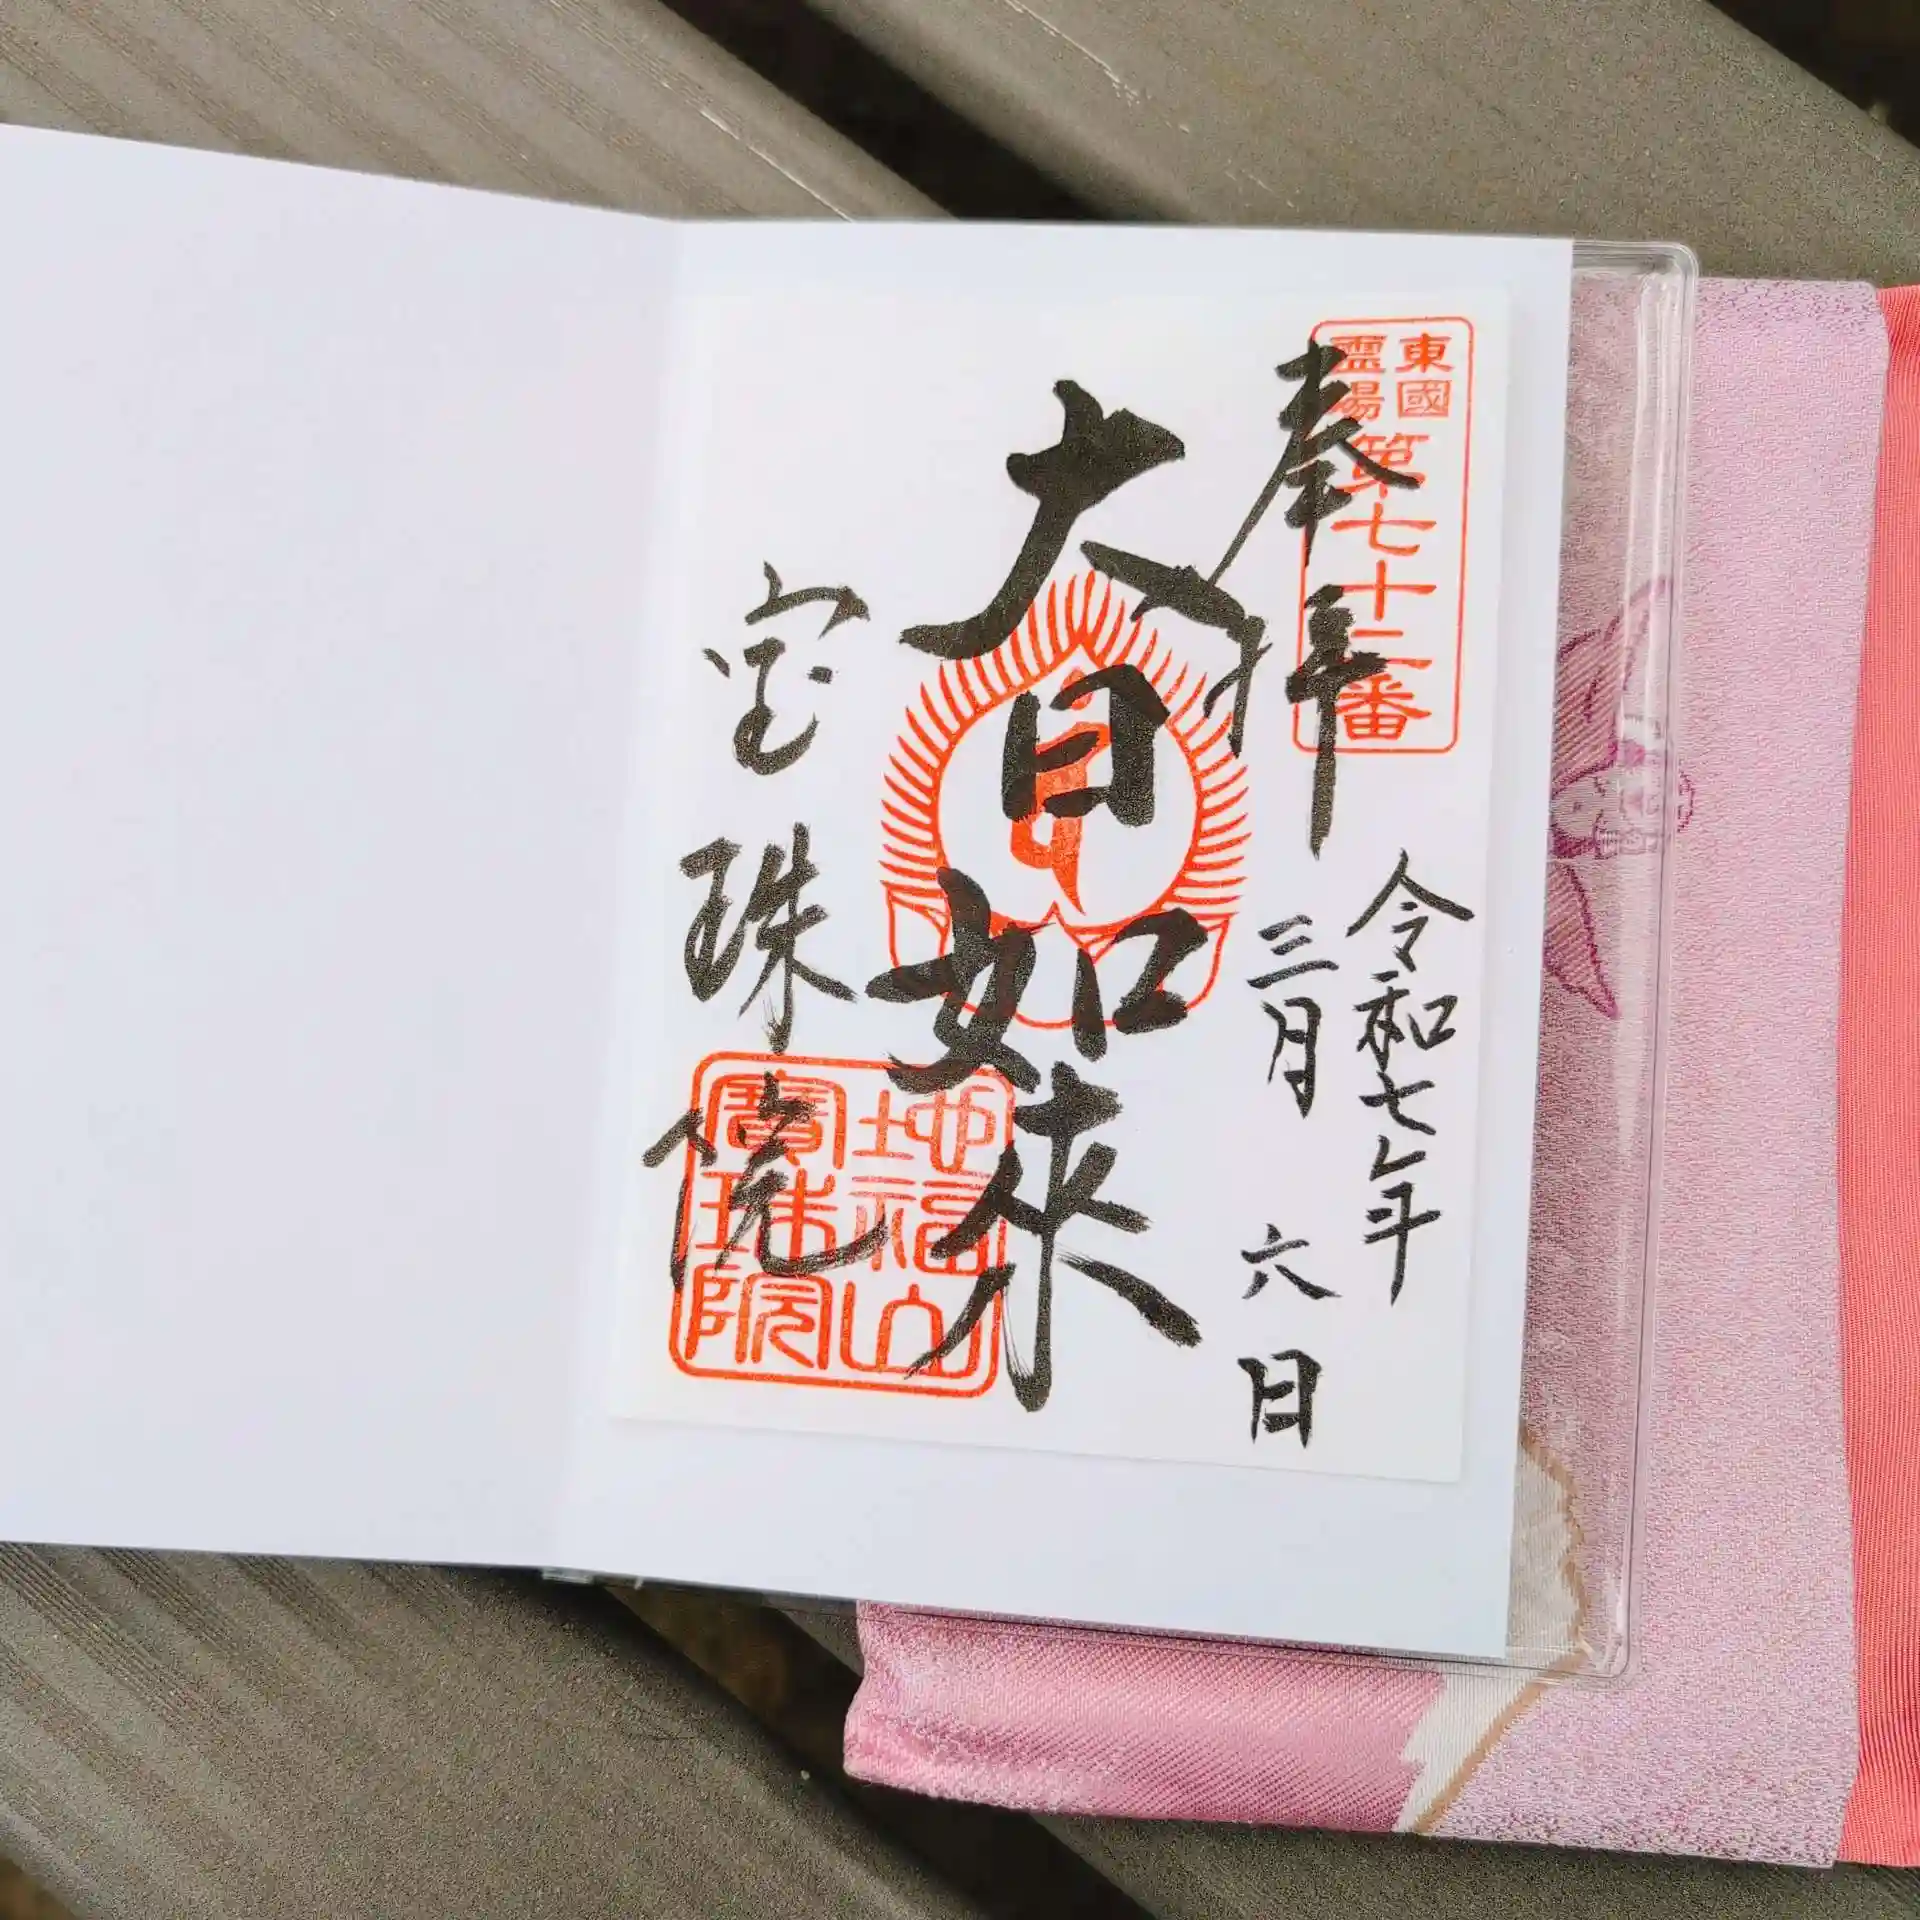 東國
霊場
第七十二番
奉拝
令和七年
三月六日
大日如来
宝珠院
地福山
寶珠院